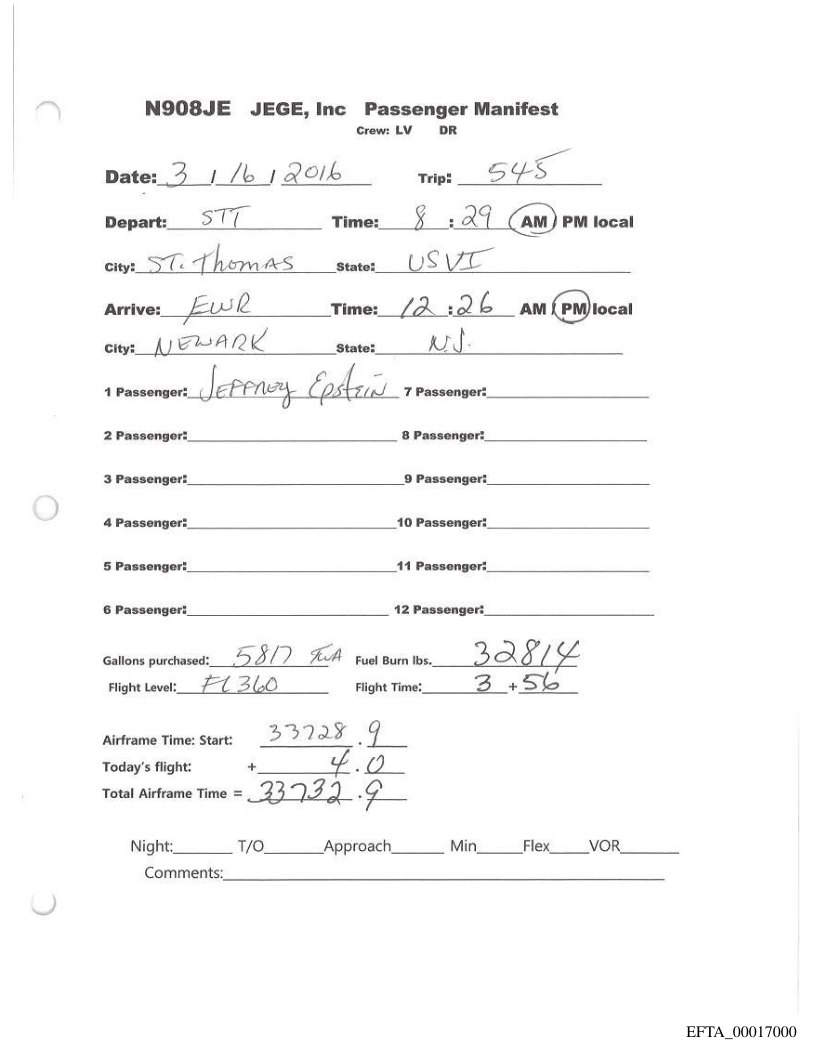 N908JE JEGE, Inc Passenger Manifest
Crew: LV DR
Date: 3 / 16 / 2016 Trip: 545
Depart: STT Time: 8 : 29 AM / PM local
City: ST. Thomas State: USVI
Arrive: EWR Time: 12 : 26 AM / PM local
City: NEWARK State: N.J.
1 Passenger: Jeffrey Epstein 7 Passenger:
2 Passenger: 8 Passenger:
3 Passenger: 9 Passenger:
4 Passenger: 10 Passenger:
5 Passenger: 11 Passenger:
6 Passenger: 12 Passenger:
Gallons purchased: 5817 Fuel Burn lbs. 32814
Flight Level: FL360 Flight Time: 3 + 56
Airframe Time: Start: 33728 . 9
Today's flight: + 4 . 0
Total Airframe Time = 33732 . 9
Night: T/O Approach Min Flex VOR
Comments:
EFTA_00017000